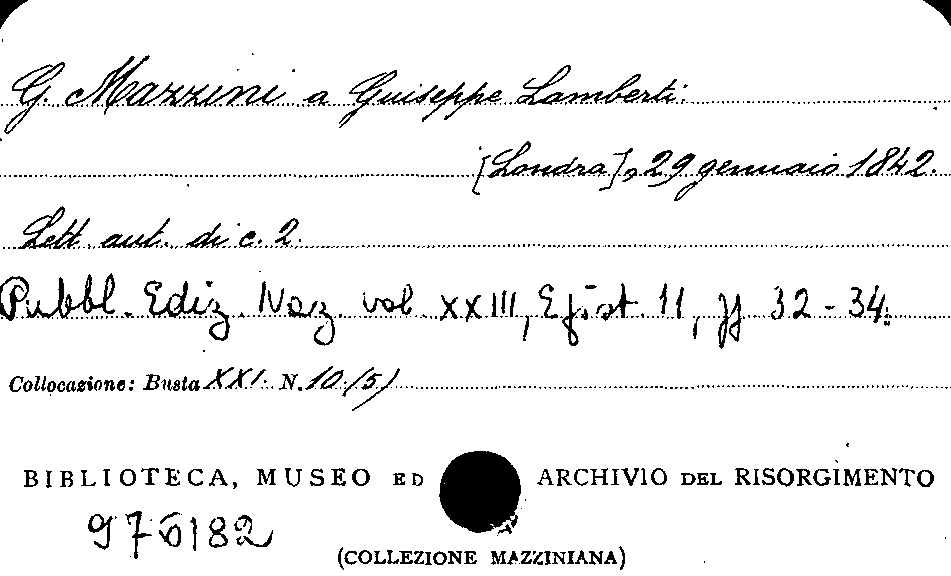 G. Mazzini a Guiseppe Lamberti.
[Londra], 29 gennaio 1842.
Lett. aut. di c. 2.
Pubbl. Ediz. Naz. vol. XXIII, Epist. 11, pp 32-34.
Collocazione: Busta XXI. N. 10.(5)
BIBLIOTECA, MUSEO ED ARCHIVIO DEL RISORGIMENTO
976182
(COLLEZIONE MAZZINIANA)